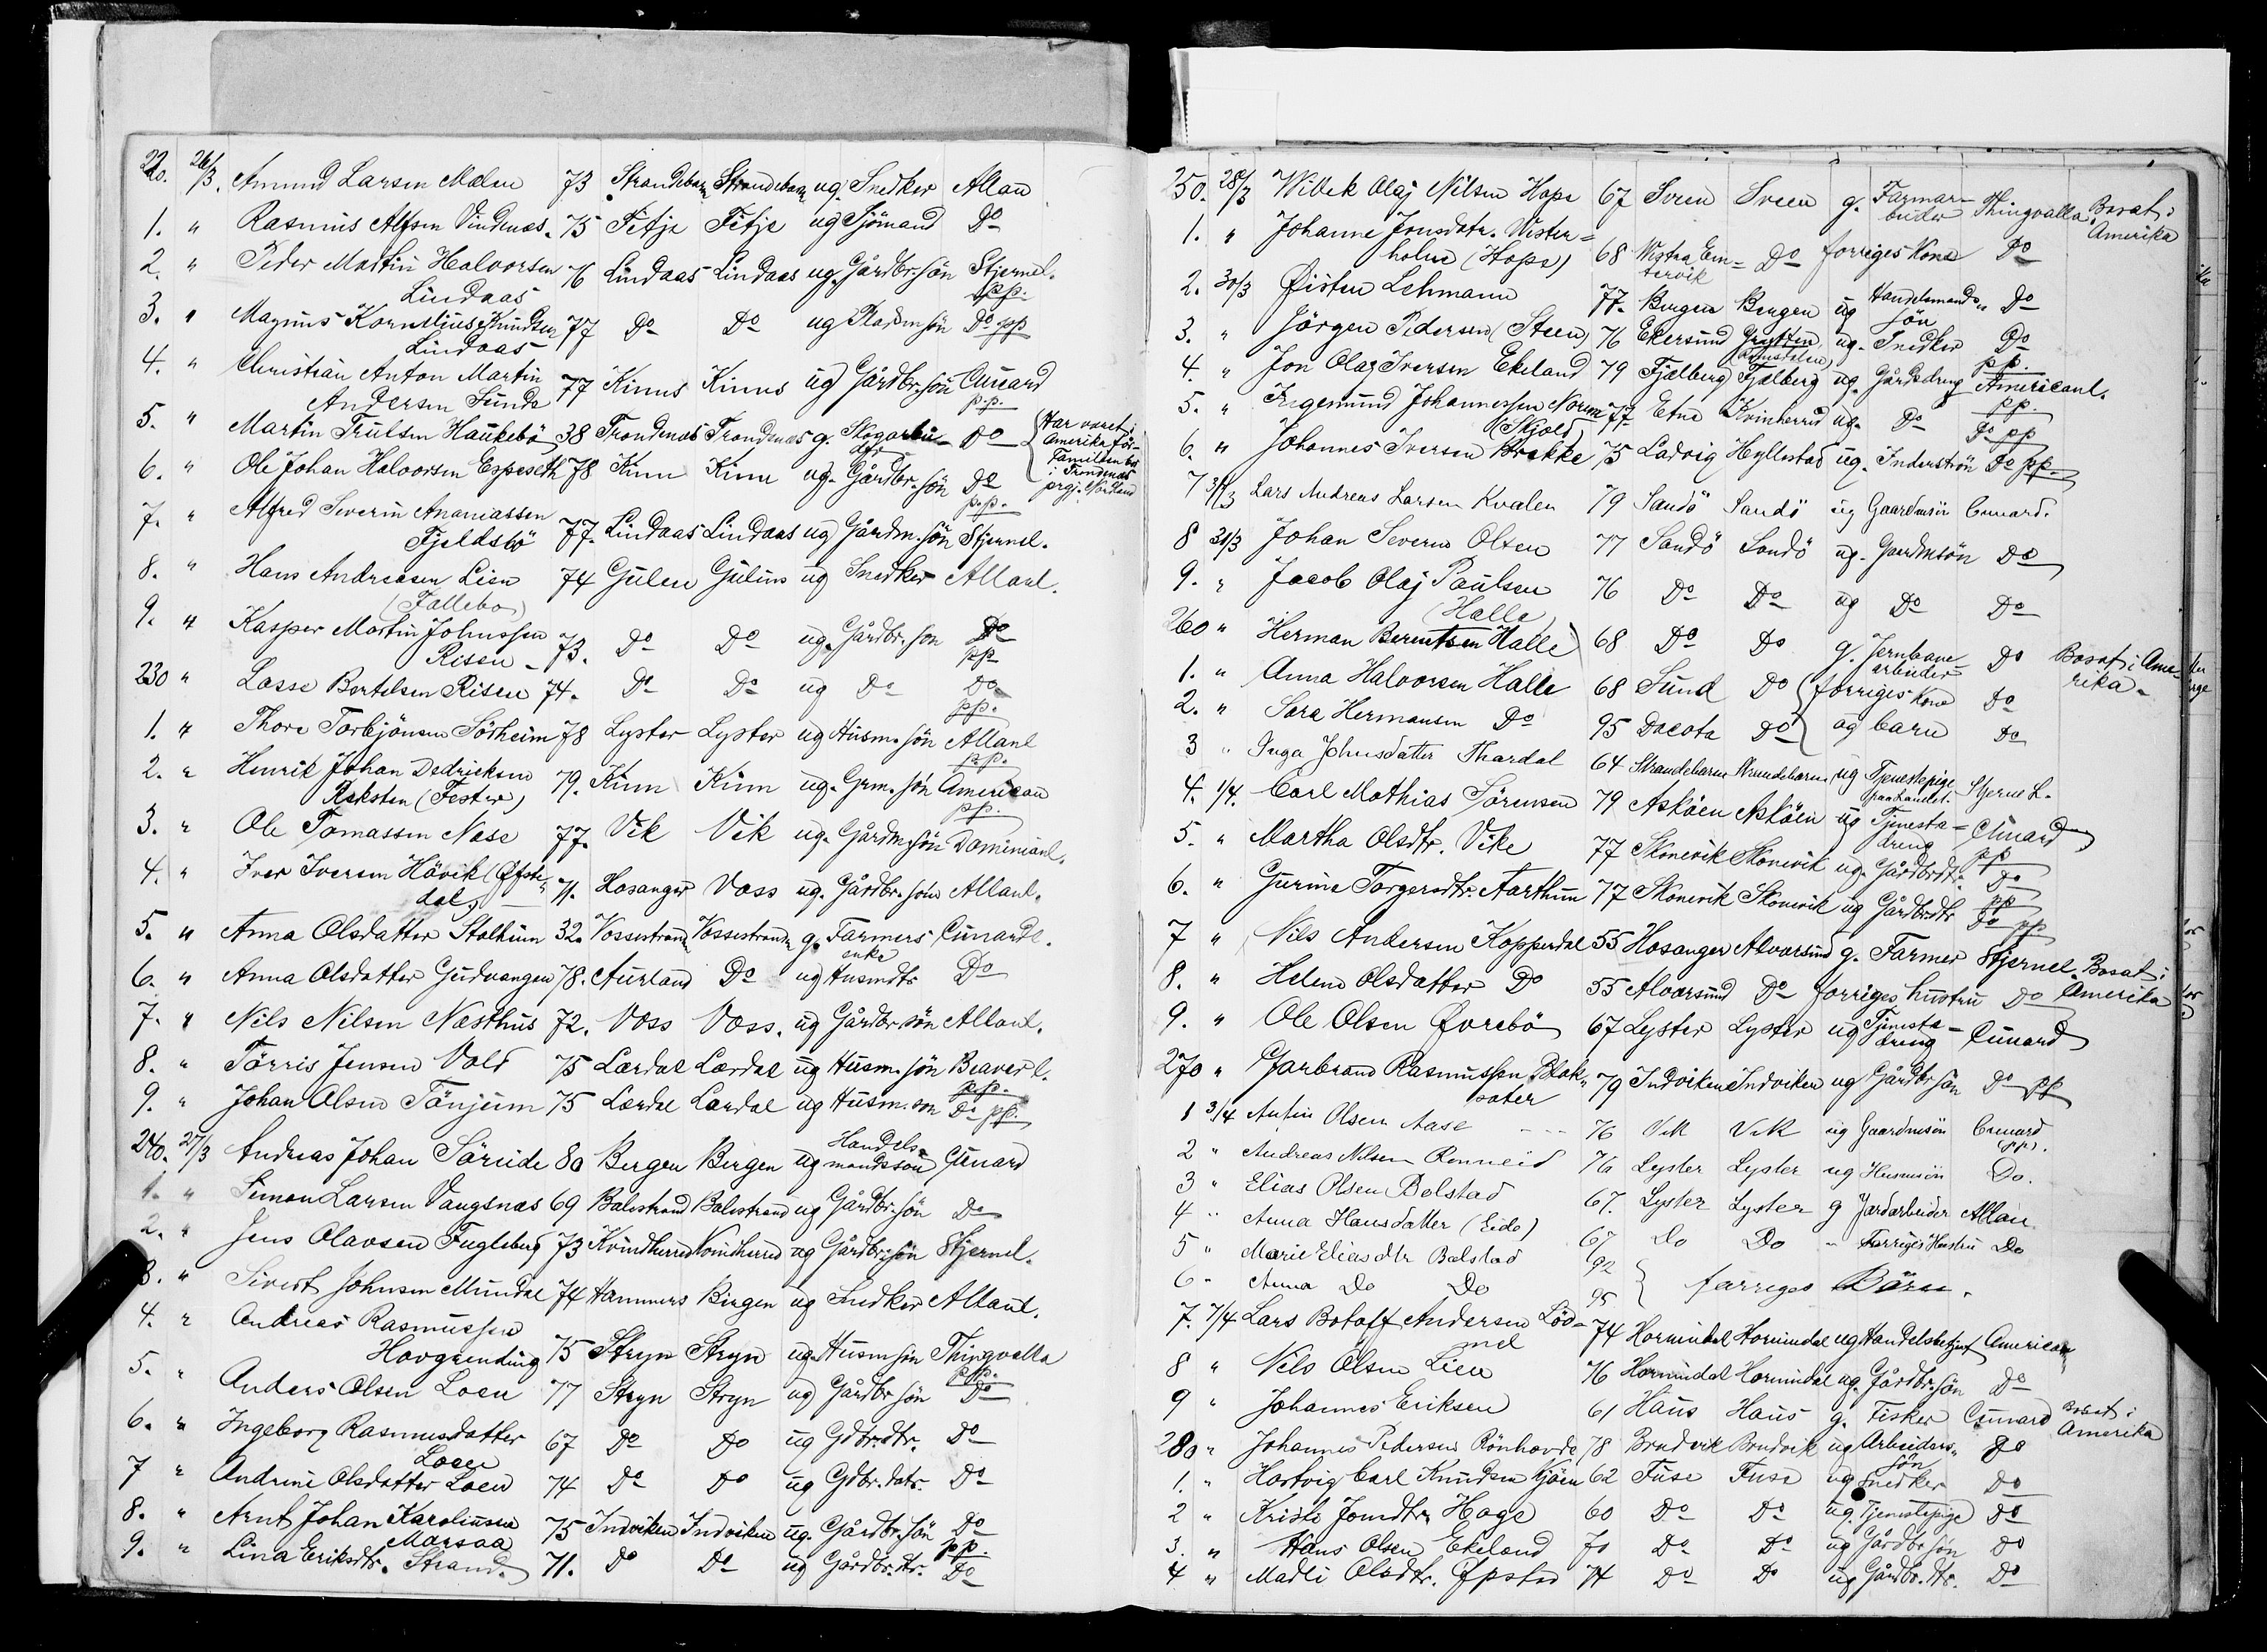 220. 26/3. Amund Larsen Mælen 73 Strandebarm Strandebarm ug. Snedker Allan
1. " Rasmus Alfsen Vindenæs. 75 Fitje Fitje ug Sjömand Do
2. " Peder Martin Halvorsen 76 Lindaas Lindaas ug. Gårdbr. sön Stjernel.
Lindaas pp.
3. " Magnus Kornelius Knudsen 77 Do Do ug Pladsm. sön Do pp
Lindaas
4. " Christian Anton Martin 77 Kinns Kinns ug Gårdbr. sön Cunard
Andersen Sunde p.p.
5. " Martin Trulsen Haukebö 38 Trondenæs Trondenæs g. Skogarbei- Do {Har været i
der Amerika för
Familien bor
i Trondenæs
prgj. Nordland
6. " Ole Johan Halvorsen Espeseth 78 Kinn Kinn ug. Gårdbr. sön Do
p.p.
7. " Alfred Severin Ananiassen
Fjeldsbö 77. Lindaas Lindaas ug Gårdm. sön Stjernel.
8. " Hans Andreasen Lien 74 Gulen Gulens ug Snedker Allanl.
(Fallebo)
9. " Kasper Martin Johnssen
Risen - 73. Do Do ug. Gårdbr. son Do
pp
230 " Lasse Bertelsen Risen 74. Do Do ug Do Do
pp.
1. " Thore Torbjönsen Sörheim 78 Lyster Lyster ug Husm. sön Allanl
p.p.
2. " Henrik Johan Dedricksen
Reksten (Fester) 79. Kinn Kinn ug. Grm. sön American
pp.
3. " Ole Tomassen Nase 77. Vik Vik ug. Gårdm. sön Dominianl.
4. " Iver Iversen Hövik (Öfste-
dal) 71. Hosanger Voss ug. Gårdbr. sön Allanl.
5. " Anna Olsdatter Stalheim 32. Vossestranden Vossestranden g. Farmers Cunardl.
enke
6. " Anna Olsdatter Gudvangen 78. Aurland Do ug Husmdtr Do
7. " Nils Nilsen Næsthus 72. Voss Voss. ug Gårdbr. sön Allanl.
8. " Törris Jensen Vold 75 Lærdal Lærdal ug Husm. sön Beaver l.
p.p.
9. " Johan Olsen Tönjum 75 Lærdal Lærdal ug Husm. son Do pp.
240. 27/3 Andreas Johan Söreide 80 Bergen Bergen ug Handels-
mandssön Cunard
1. " Simon Larsen Vangsnæs 69 Balestrand Balestrand ug Gårdbr. sön Do
2. " Jens Olavsen Fugleberg 73 Kvindherred Kvindherred ug Gårdbr. sön Stjernel.
3. " Sivert Johnsen Mundal 74 Hammers Bergen ug Snedker Allanl.
4. " Andreas Rasmussen
Hovgrending 75 Stryn Stryn ug. Husm sön Thingvalla
p.p.
5. " Anders Olsen Loen 77 Stryn Stryn ug Gårdbr sön Do
6. " Ingeborg Rasmusdatter
Loen 67 Do Do ug Gdbr. dtr. Do
7 " Andrine Olsdatter Loen 74 Do Do ug Gdbr. datr. Do
8. " Arnt Johan Karolinsen
Marsaa 75 Indviken Indviken ug. Gårdbr. sön Do
pp.
9. " Lina Eriksdtr. Strand. 71. Do Do ug Gårdbr. dtr. Do
250. 28/3 Willek Olaj Nilsen Hope 67 Sveen Sveen g. Farmar-
beider Thingvalla Bosat i
Amerika
1. " Johanne Jonsdatr. Wister-
holm (Hope) 68 Westra Em-
tervik Do forriges Kone Do
2. 30/3 Øisten Lehmann 77. Bergen Bergen ug Handelsmands-
sön Do
3. " Jörgen Pedersen (Steen) 76 Ekersund Grytten,
Romsdalen) ug. Snedker Do
pp.
4. " Jon Olaj Iversen Ekeland 79 Fjælberg Fjelberg ug. Gårdsdreng Americanl.
pp.
5. " Ingemund Johannessen Norem
(Skjold) 77 Etne Kvinherred ug. Do Do pp
6. " Johannes Iversen Brække 75 Ladvig Hyllestad ug. Inderströn Do pp.
7 31/3 Lars Andreas Larsen Kvalen 79 Sandö Sandö ug Gaardmsön Cunard.
8 31/3 Johan Severin Olsen 77 Sandö Sandö ug. Gaardmsön Do
9. " Jacob Olaj Paulsen
(Halle) 76 Do Do ug Do Do
260 " Herman Berentsen Halle 68 Do Do g. Jernbane-
arbeider Do Bosat i Ame-
rika.
1. " Anna Halvorsen Halle 68 Sund Do {forriges Kone Do
2. " Sara Hermansen Do 95 Dacota Do } og barn Do
3 " Inga Johnsdatter Thardal 64 Strandebarm Strandebarm ug Tjenestepige
paa Landet. Stjerne L.
4. 1/4. Carl Mathias Sörensen 79 Asköen Asköen ug Tjeneste-
dreng Cunard
pp
5. " Martha Olsdtr. Vike 77 Skonevik Skonevik ug. Gårdbrdtr. Do
pp
6. " Gurine Torgersdtr. Aarthun 77 Skonevik Skonevik ug Gårdbrdtr Do pp
7 " Nils Andersen Kopperdal 55 Hosanger Alvorsund g. Farmer Stjernel. Bosat i
Amerika
8. " Helene Olsdatter Do 55 Alvorsund Do forriges hustru Do
9. " Ole Olsen Øvrebö 67 Lyster Lyster ug Tjeneste-
dreng Cunard
270 " Garbrand Rasmussen Blak-
sæter 79 Indviken Indviken ug Gårdbr sön Do pp
1 3/4 Anfin Olsen Aase 76 Vik Vik ug Gaardmsön Cunard
(pp).
2 " Andreas Nilsen Ronneid 76 Lyster Lyster ug Husmsön Do.
3 " Elias Olsen Bolstad 67. Lyster Lyster g Jordarbeider Allan
4 " Anna Hansdatter (Eide) 67 Do Do " Forriges Hustru Do
5 " Marie Eliasdtr Bolstad 92
6 " Anna Do Do 95 } forriges Börn.
7. 7/4 Lars Botolf Andersen Löd-
mel 74 Hornindal Hornindal ug Handelsbetjent American
8 " Nils Olsen Lien 76 Hornindal Hornindal ug. Gårdbr. sön Do
9 " Johannes Eriksen 61 Haus Haus g. Fisker Cunard Bosat i
Amerika
280 " Johannes Pedersen Rönhovde 78 Brudvik Brudvik ug Arbeiders-
sön Do
1. " Hartvig Carl Knudsen Kjöen 62 Fuse Fuse ug Snedker Do
2 " Kristi Jonsdtr. Hage 60 Do Do ug. Tjenstepige Do
3. " Hans Olsen Ekeland 70 Do Do ug Gårdbr sön Do
4 " Madli Olsdtr. Øpstad 74 Do Do ug Gårdbr. dtr. Do